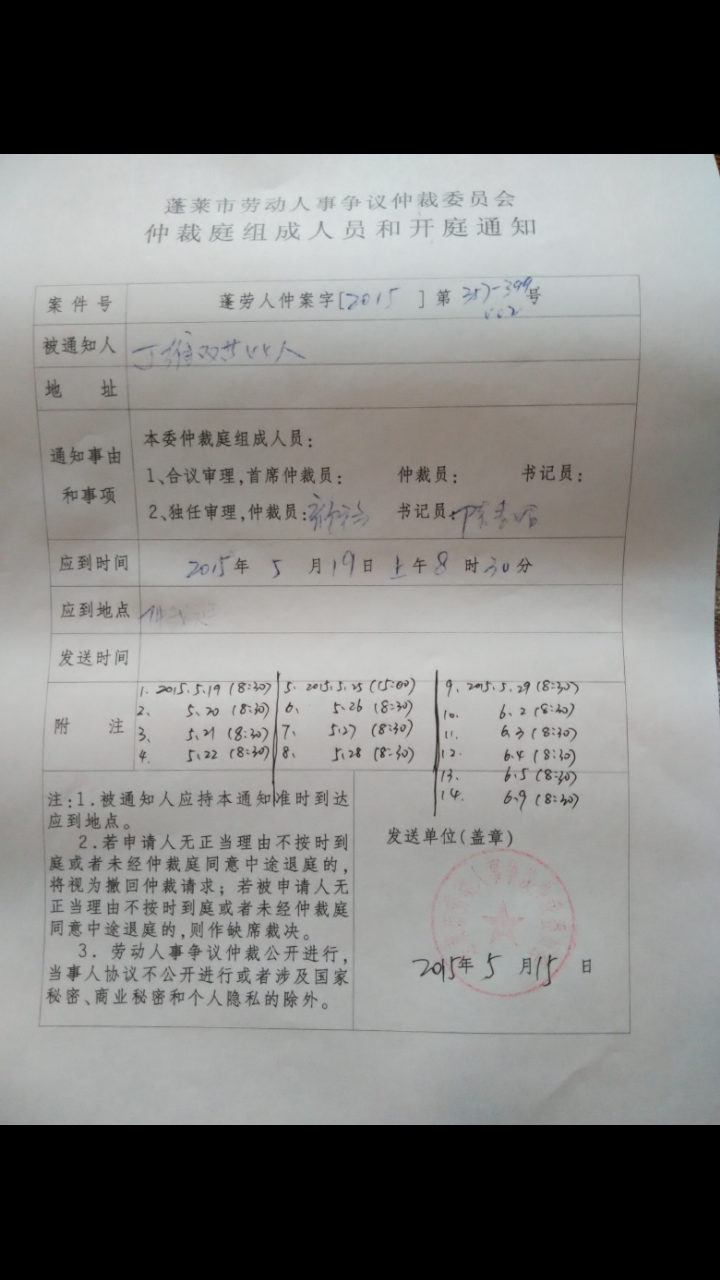 蓬莱市劳动人事争议仲裁委员会
仲裁庭组成人员和开庭通知
案件号 蓬劳人仲案字[2015 ]第 号
被通知人
地 址
通知事由和事项
本委仲裁庭组成人员：
1、合议审理，首席仲裁员： 仲裁员： 书记员：
2、独任审理，仲裁员： 书记员：
应到时间 2015年 5 月19日 上午8 时30分
应到地点
发送时间
附 注
1. 2015.5.19 (8:30)
2. 5.20 (8:30)
3. 5.21 (8:30)
4. 5.22 (8:30)
5. 2015.5.25 (15:00)
6. 5.26 (8:30)
7. 5.27 (8:30)
8. 5.28 (8:30)
9. 2015.5.29 (8:30)
10. 6.2 (8:30)
11. 6.3 (8:30)
12. 6.4 (8:30)
13. 6.5 (8:30)
14. 6.9 (8:30)
注：1．被通知人应持本通知准时到达
应到地点。
2．若申请人无正当理由不按时到
庭或者未经仲裁庭同意中途退庭的，
将视为撤回仲裁请求；若被申请人无
正当理由不按时到庭或者未经仲裁庭
同意中途退庭的，则作缺席裁决。
3．劳动人事争议仲裁公开进行，
当事人协议不公开进行或者涉及国家
秘密、商业秘密和个人隐私的除外。
发送单位（盖章）
2015年 5 月15 日